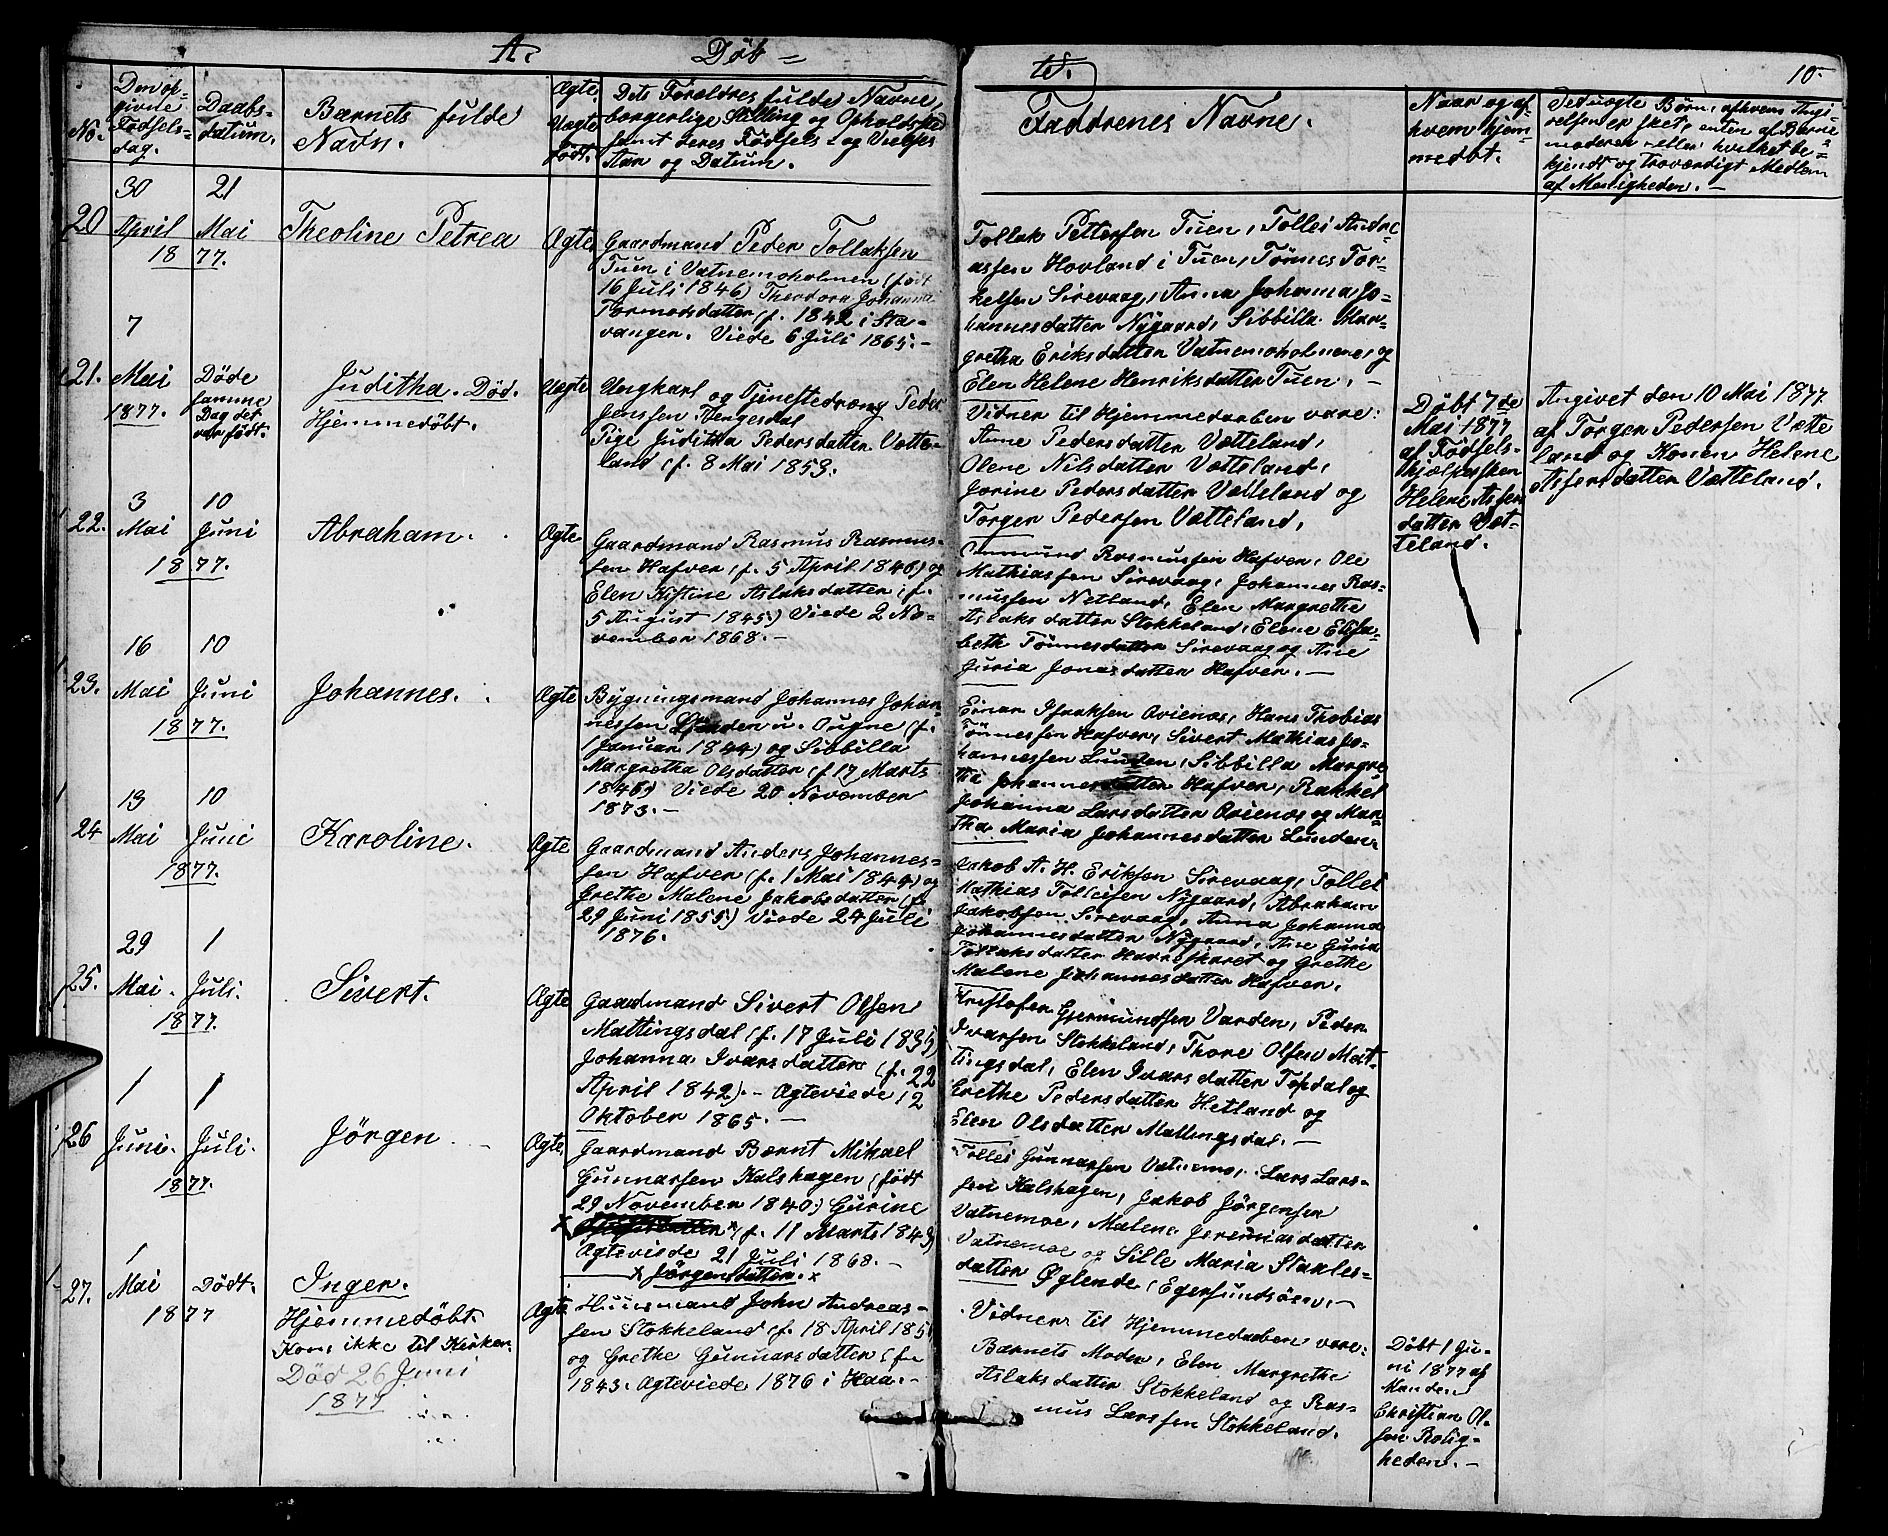 A. Døb =
te. 10.
No.
Den op-
givne
Fødsels-
dag.
Daabs-
datum.
Barnets fulde
Navn.
Ægte
Uægte
født.
Dets Forældres fulde Navne,
borgerlige Stilling og Opholdssted
samt deres Fødsels- og Vielses
Aar og Datum.
Faddrenes Navne.
Naar og af
hvem hjem-
medbt.
Ved uægte Børn, af hvem Angi-
velsen er skeet, enten af Barne
moderen eller hvilket be-
kjendt og troværdigt Medlem
af Menigheden. -
20
30
April
21
Mai
1877.
Theoline Petrea
Ægte
Gaardmand Peder Tollaksen
Tuen i Vatnemoholmen (født
16 Juli 1846) Theodora Johanna
Tormodsdatter (f. 1842 i Sta-
vanger. Viede 6 Juli 1865. -
Tollak Pettersen Tuen, Tollef Andre
assen Hovland i Tuen, Tønnes Tor-
kelsen Sirevaag, Anna Johanna Jo-
hannesdatter Nygaard, Sibbilla Mar-
gretha Eriksdatter Vatnemoholmene, og
Elen Helene Henriksdatter Tuen. -
21.
7
Mai
1877.
Døde
samme
Dag det
var født.
Juditha. Død.
Hjemmedøbt.
Uægte
Ungkarl og Tjenestedreng Peder
Jenssen Tengesdal
Pige Juditha Pedersdatter Vætte-
land (f. 8 Mai 1853.
Vidner til Hjemmedaaben vare:
Anne Pedersdatter Vætteland,
Olene Nilsdatter Vætteland,
Jorine Pedersdatter Vætteland og
Torger Pedersen Vætteland,
Døbt 7de
Mai 1877
af Fødsels-
hjælpersken
Helene Asser
datter Væt-
teland.
Angivet den 10 Mai 1877
af Torger Pedersen Vætte
land og Konen Helene
Assersdatter Vætteland.
22.
3
Mai
10
Juni
1877.
Abraham.
Ægte
Gaardmand Rasmus Rasmus-
sen Hafver (f. 5 April 1846) og
Elen Kistine Aslaksdatter (f.
5 August 1845) Viede 2 No-
vember 1868. -
Ommund Rasmussen Hafver, Ole
Mathiassen Sirevaag, Johannes Ras-
mussen Netland, Elen Margrethe
Aslaksdatter Stokkeland, Elene Elisa-
beth Tønnesdatter Sirevaag og Ane
Guria Jonasdatter Hafver. -
23.
16
Mai
10
Juni
1877.
Johannes.
Ægte
Bygningsmand Johannes Johan-
nessen Lunden u. Ougne (f.
1 Januar 1844) og Sibbilla
Margretha Olsdatter (f 17 Marts
1846) Viede 20 November
1873. -
Einar Isaaksen Qvienæs, Hans Thobias
Tønnessen Hafver, Sivert Mathias Jo-
hannessen Lunden, Sibbilla Margre
tha Johannesdatter Hafver, Rakkel
Johanna Larsdatter Qvienæs og Mar-
tha Maria Johannesdatter Lunden.
24
13
Mai
10
Juni
1877.
Karoline.
Ægte
Gaardmand Anders Johannes-
sen Hafver (f. 1 Mai 1844) og
Grethe Malene Jakobsdatter (f.
29 Juni 1855) Viede 24 Juli
1876.
Jakob A. H. Eriksen Sirevaag, Tollef
Mathias Tollefsen Nygaard, Abraham
Jakobsen Sirevaag, Anna Johanna
Johannesdatter Nygaard, Ane Guria
Tollaksdatter Havreskaret og Grethe
Malene Johannesdatter Hafver.
25.
29
Mai.
1
Juli.
1877.
Sivert.
Ægte
Gaardmand Sivert Olsen
Mattingsdal (f. 17 Juli 1835)
Johanna Ivarsdatter (f. 22
April 1842). - Ægteviede 12
Oktober 1865. -
Kristofer Gjermundsen Varden, Peder
Ivarsen Stokkeland, Thore Olsen Mat-
tingsdal, Elen Ivarsdatter Topdal og
Grethe Pedersdatter Hetland og
Elen Olsdatter Mattingsdal. -
26
1
Juni.
1
Juli.
1877.
Jörgen
Ægte.
Gaardmand Bærnt Mikael
Gunnarsen Kalshagen (født
29 November 1840) Gurine
x (f. 11 Marts 1843)
Ægteviede 21 Juli 1868. -
x Jørgensdatter. x
Tollef Gunnarsen Vatnemo, Lars Lars-
sen Kalshagen, Jakob Jörgensen
Vatnemoe, Malene Jeremiasdatter
Vatnemoe og Sille Maria Staales-
datter Øglende (Egersundsöen. -
27.
1
Mai
Dødt.
1877
Inger.
Hjemmedøbt.
Kom ikke til Kirken
Død 26 Juni
1877
Ægte
Huusmand John Andreas-
sen Stokkeland (f. 18 April 185
og Grethe Gunnarsdatter (f.
1843. Ægteviede 1876 i Haa. -
Vidner til Hjemmedaaben vare:
Barnets Moder, Elen Margrethe
Aslaksdatter Stokkeland og Ras-
mus Larssen Stokkeland.
Døbt 1 Ju-
ni 1877 af
Manden
Christian Ol-
sen Rolig-
heden. -